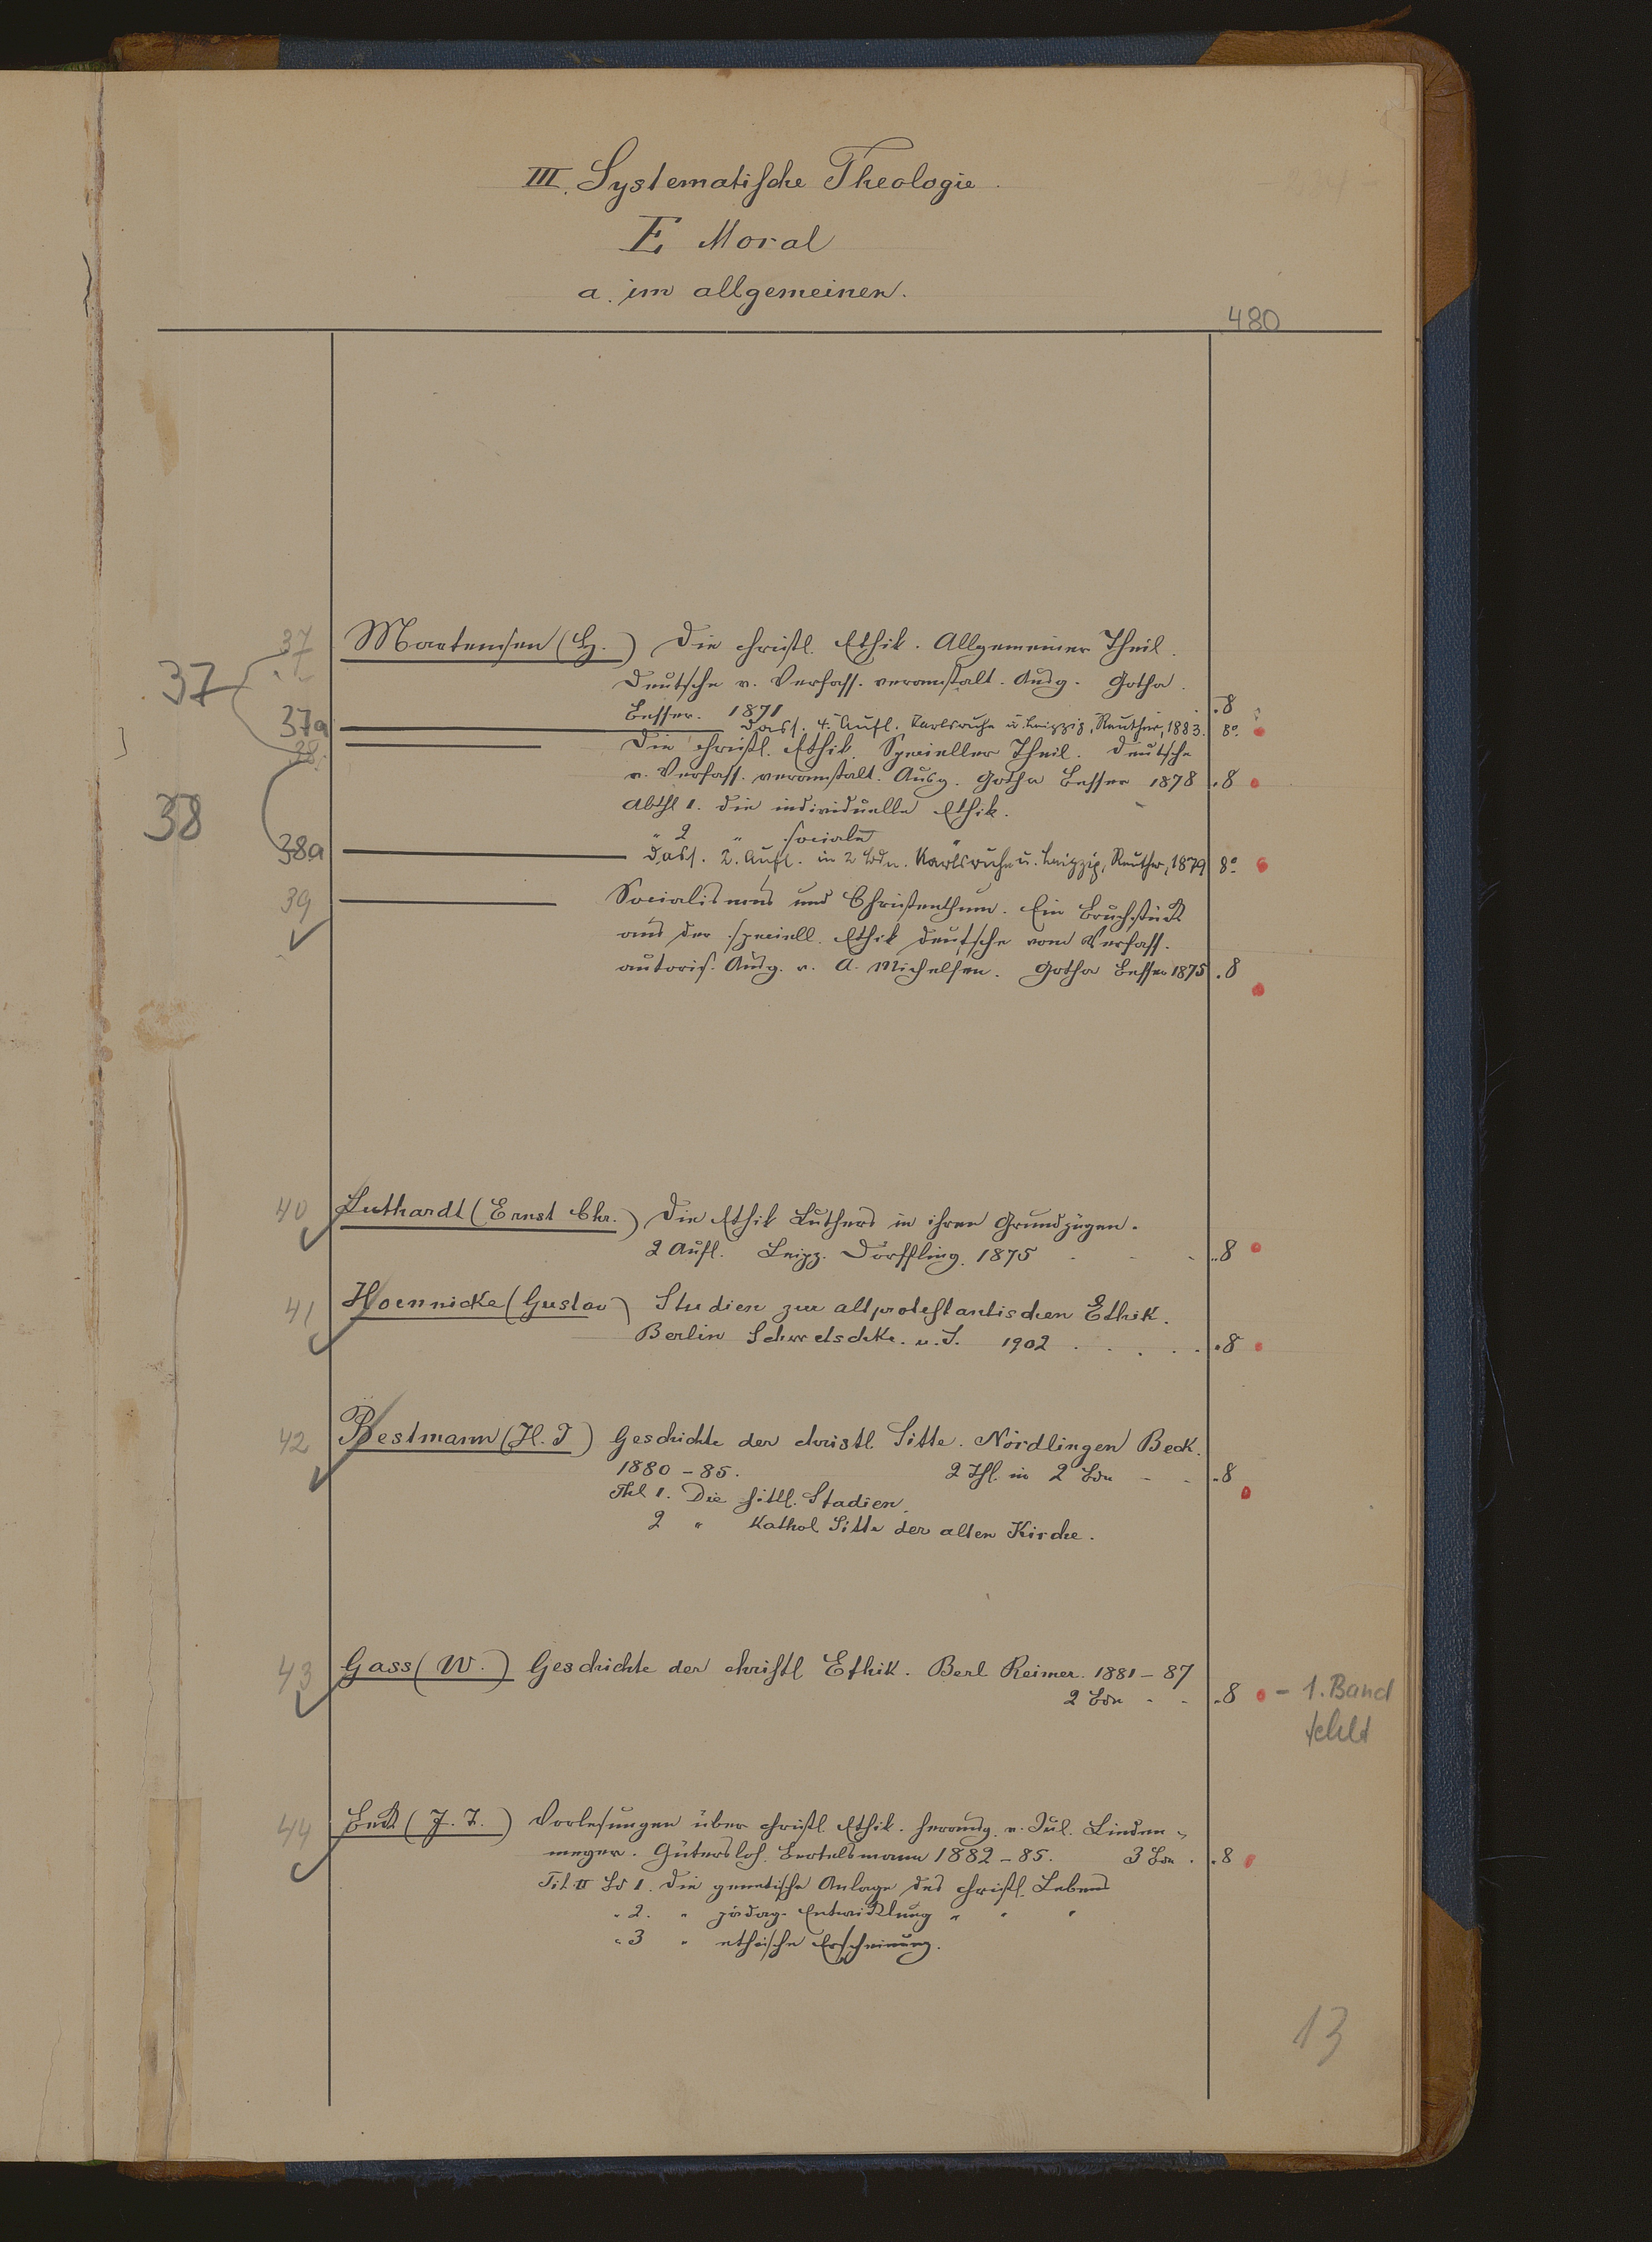 III. Systematische Theologie.
E Moral
a. im allgemeinen.
480
37 Martensen (H.) Die christl. Ethik. Allgemeiner Theil.
37 Deutsche v. Verfass. veranstalt. Ausg. Gotha.
Besser. 1871 . 8
37a Dass. 4. Aufl. Karlsruhe u. Leipzig, Reuther, 1883. 8º.
38. Die christl. Ethik. Specieller Theil. Deutsche
v. Verfass. veranstalt. Ausg. Gotha Besser 1878 . 8
38 Abthl 1. die individuelle Ethik.
" 2 " sociale "
38a Dass. 2. Aufl. in 2 Bdn. Karlsruhe u. Leipzig, Reuther, 1879 8º
39 Socialismus und Christenthum. Ein Bruchstück
aus der speciell. Ethik deutsche vom Verfass.
autoris. Ausg. v. A. Michelsen. Gotha Besser 1875 . 8
40 Luthardt (Ernst Chr.) Die Ethik Luthers in ihren Grundzügen.
2 Aufl. Leipz. Dörffling. 1875 - - - .. 8
41 Hoennicke (Gustav) Studien zur altprotestantischen Ethik.
Berlin Schwetschke. u. S. 1902 . . . . . . 8
42 Bestmann (H. J) Geschichte der christl. Sitte. Nördlingen Beck.
1880 - 85. 2 Thl. in 2 Bdn - - . 8
Thl 1. Die sittl. Stadien.
2 " Kathol. Sitte der alten Kirche.
43 Gass (W.) Geschichte der christl Ethik. Berl Reimer. 1881 - 87
2 Bde - - . 8 - 1. Band
fehlt
44 Beck (J. T.) Vorlesungen über christl. Ethik. herausg. v. Jul. Linden-
meyer. Gütersloh. Bertelsmann 1882 - 85. 3 Bde . . 8
Tit II Bd 1. Die genetische Anlage des christl. Lebens
" 2. " pädag. Entwicklung " " "
" 3 " ethische Erscheinung.
13